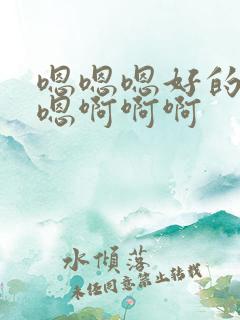 嗯嗯嗯好的
嗯啊啊啊
水倾落
未经同意禁止转载